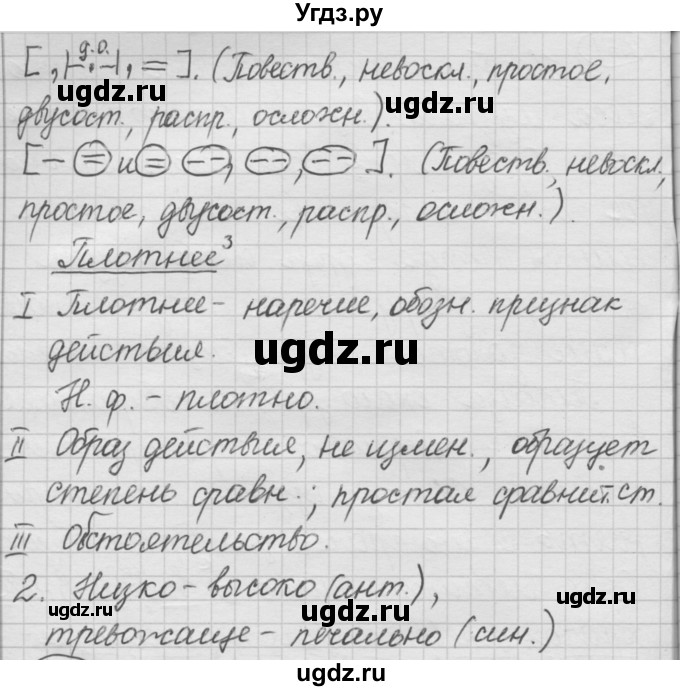 Угдз.ру
д.о.
[ , |-.-|, = ]. (Повеств., невоскл., простое,
ugdz.ru ugdz.ru
двусост., распр., осложн.).
[ — = и = -- , -- , -- ]. (Повеств., невоскл.,
простое, двусост., распр., осложн.).
Плотнее³
I Плотнее - наречие, обозн. признак
действия.
ugdz.ru
Н. ф. - плотно.
II Образ действия, не измен., образует
степень сравн.; простая сравнит. ст.
III Обстоятельство.
2. Низко - высоко (ант.),
ugdz.ru ugdz.ru ugdz.ru
тревожаще - печально (син.)
ugdz.ru